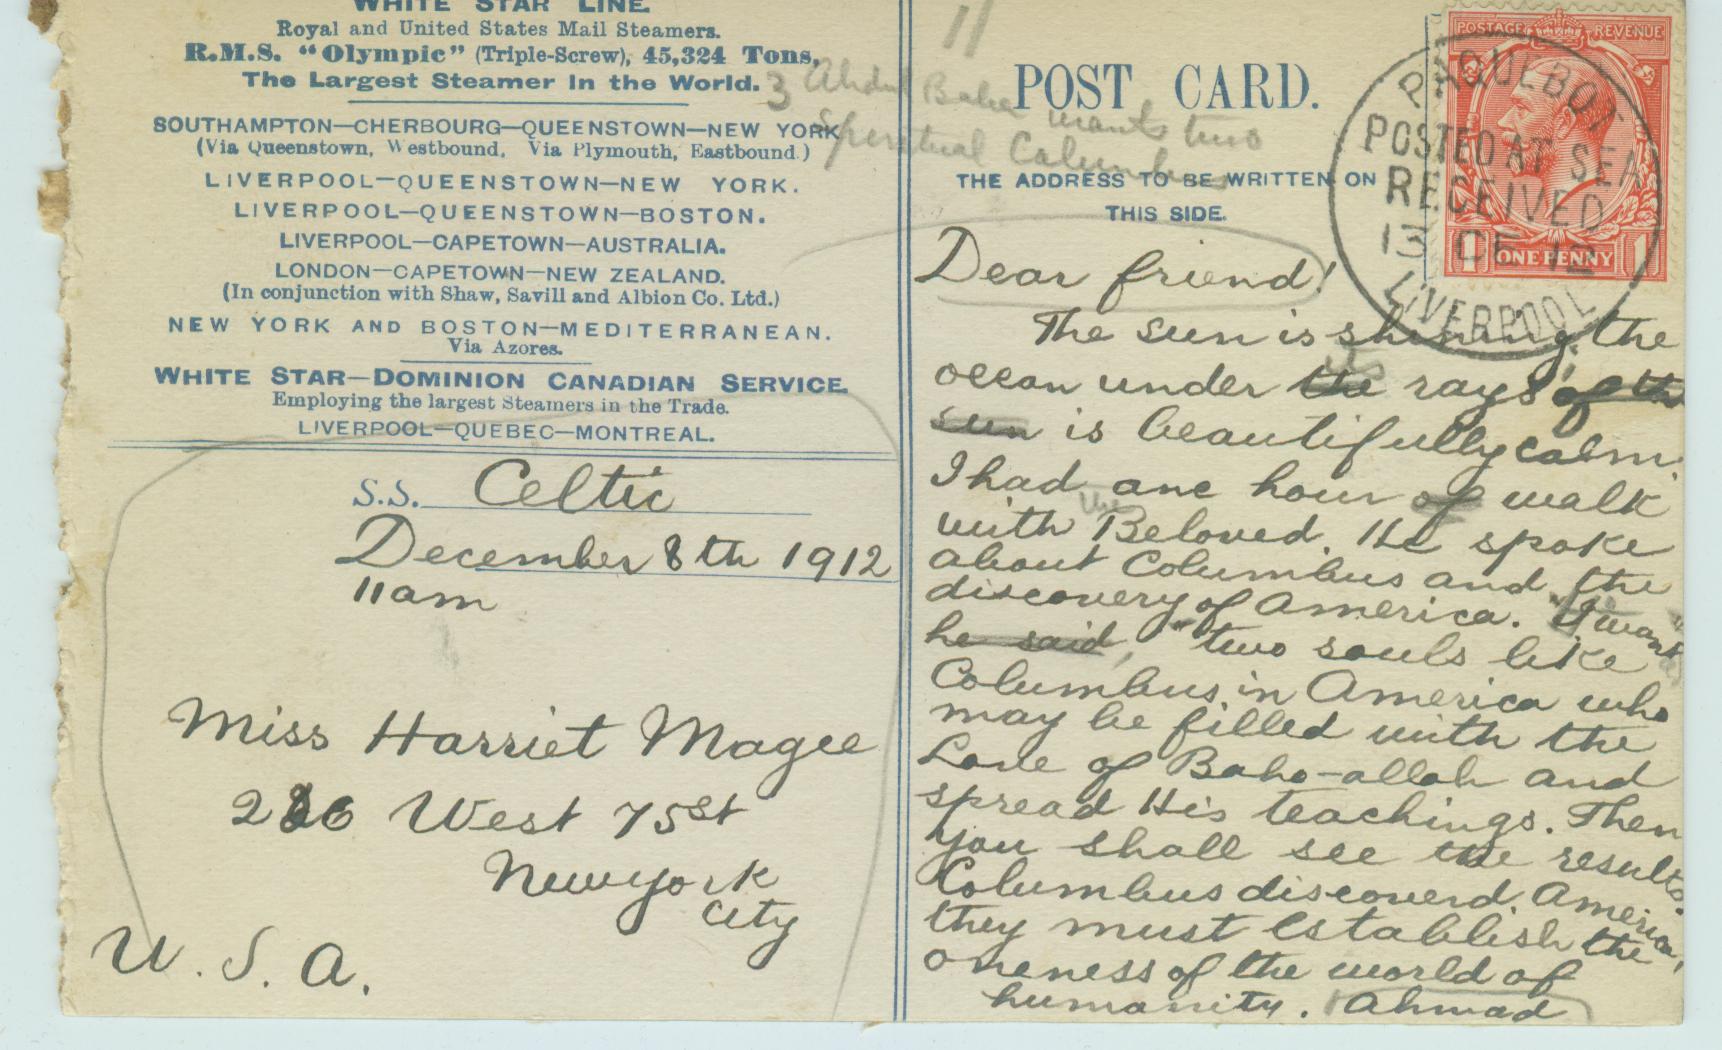 WHITE STAR LINE.
Royal and United States Mail Steamers.
R.M.S. "Olympic" (Triple-Screw), 45,324 Tons,
The Largest Steamer in the World.
SOUTHAMPTON—CHERBOURG—QUEENSTOWN—NEW YORK
(Via Queenstown, Westbound, Via Plymouth, Eastbound.)
LIVERPOOL—QUEENSTOWN—NEW YORK.
LIVERPOOL—QUEENSTOWN—BOSTON.
LIVERPOOL—CAPETOWN—AUSTRALIA.
LONDON—CAPETOWN—NEW ZEALAND.
(In conjunction with Shaw, Savill and Albion Co. Ltd.)
NEW YORK AND BOSTON—MEDITERRANEAN.
Via Azores.
WHITE STAR—DOMINION CANADIAN SERVICE.
Employing the largest Steamers in the Trade.
LIVERPOOL—QUEBEC—MONTREAL.
S.S. Celtic
December 8th 1912
11am
Miss Harriet Magee
West 75st
New york
city
U. S. A.
11
3 Abdul Baha wants two
Spiritual Columbus
POST CARD.
THE ADDRESS TO BE WRITTEN ON
THIS SIDE.
POSTAGE REVENUE
1 ONE PENNY 1
PAQUEBOT
POSTED AT SEA
RECEIVED
13 DE 12
LIVERPOOL
Dear friend!
The sun is shining, the
its
ocean under the rays of the
sun is beautifully calm.
I had one hour of walk
the
with Beloved. He spoke
about Columbus and the
discovery of America. "I want"
he said, "two souls like
Columbus in America who
may be filled with the
Love of Baha-ollah and
spread His teachings. Then
you shall see the results.
Columbus discoverd America,
they must establish the
oneness of the world of
humanity. Ahmad